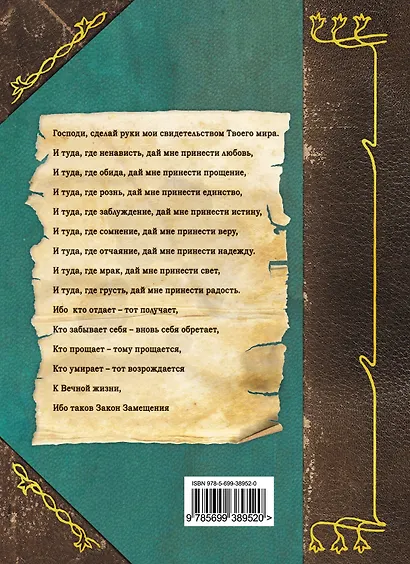 Господи, сделай руки мои свидетельством Твоего мира.
И туда, где ненависть, дай мне принести любовь,
И туда, где обида, дай мне принести прощение,
И туда, где рознь, дай мне принести единство,
И туда, где заблуждение, дай мне принести истину,
И туда, где сомнение, дай мне принести веру,
И туда, где отчаяние, дай мне принести надежду.
И туда, где мрак, дай мне принести свет,
И туда, где грусть, дай мне принести радость.
Ибо кто отдает – тот получает,
Кто забывает себя – вновь себя обретает,
Кто прощает – тому прощается,
Кто умирает – тот возрождается
К Вечной жизни,
Ибо таков Закон Замещения
ISBN 978-5-699-38952-0
9 785699 389520 >